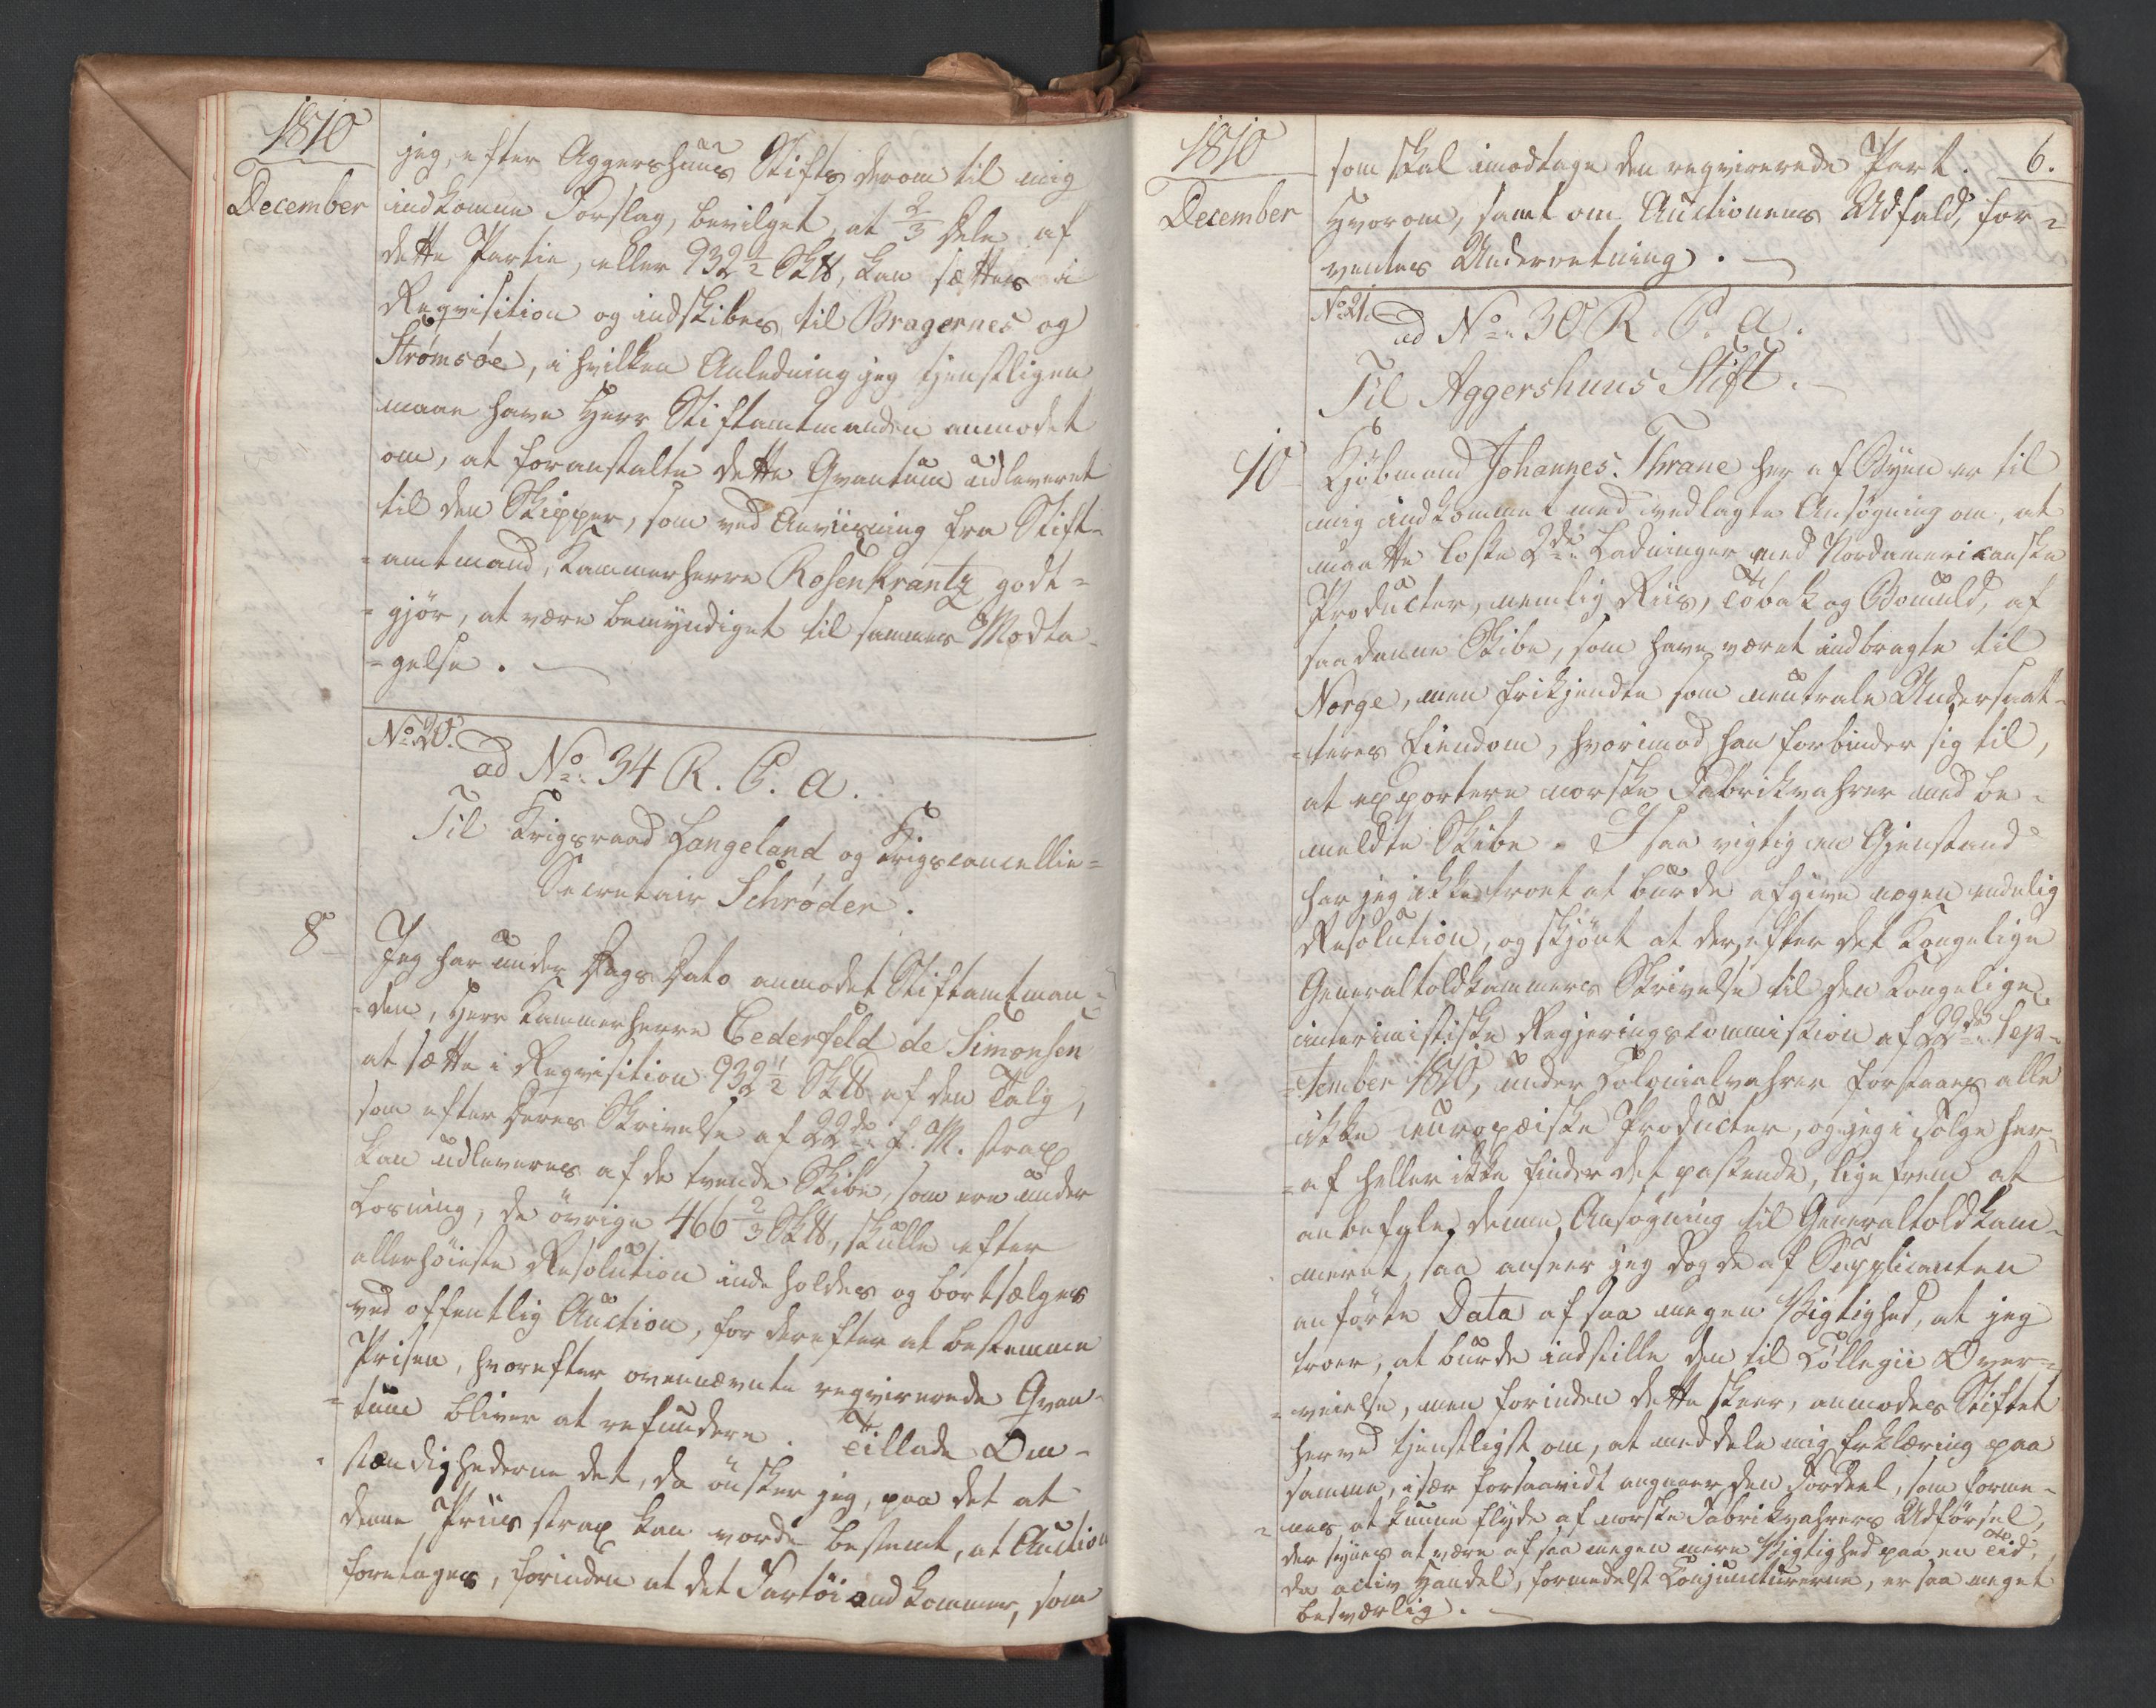 1810
December
jeg, efter Aggershuus Stifts derom til mig
indkomne Forslag, bevilget, at 2/3 Dele af
dette Partie, eller 932 1/2 Sk℔, kan sættes i
Reqvisition og indskibes til Bragernes og
Strømsøe, i hvilken Anledning jeg tjenstligen
maae have Herr Stiftamtmanden anmodet
om, at foranstalte dette Qvantum udleveret
til den Skipper, som ved Anviisning fra Stift-
=amtmand, Kammerherre Rosenkrantz godt=
=gjör, at være bemyndiget til sammes Modta-
=gelse.
No. 20.
ad No. 34 R. P. a.
Til Krigsraad Langeland og Krigscancellie=
Secretair Schrøder.
8
Jeg har under Dags Dato anmodet Stiftamtman-
=den, Herr Kammerherre Cederfeld de Simonsen
at sætte i Reqvisition 932 1/2 Sk℔ af den Talg,
som efter Deres Skrivelse af 22de f. M. strax
kan udleveres af de tvende Skibe, som ere under
Losning, de övrige 466 2/3 Sk℔, skulle efter
allerhöieste Resolution inde holdes og bortsælges
ved offentlig Auction, for derefter at bestemme
Prisen, hvorefter ovennævnte reqvirerede Qvan-
=tum bliver at refundere. Tillade Om-
stændighederne det, da önsker jeg, paa det at
denne Priis strax kan vorde bestemt, at Auction
foretages, forinden at det Fartöi indkommer, som
1810
December
6.
som skal imodtage den reqvirerede Part.
Hvorom, samt om Auctionens Udfald, for-
ventes Underretning.
No. 21.
ad No. 30 R. P. a.
Til Aggershuus Stift.
10
Kjöbmand Johannes Thrane her af Byen er til
mig indkommet med vedlagte Ansögning om, at
maatte losse 2de Ladninger med Nordamericanske
Producter, nemlig Riis, Tobak og Bomuld, af
saadanne Skibe, som have været indbragte til
Norge, men frikjendte som neutrale Undersaat-
=teres Eiendom, hvorimod han forbinder sig til,
at exportere norske Fabrikvahrer med be-
meldte Skibe. I saa vigtig en Gjenstand
har jeg ikke troet at burde afgive nogen endelig
Resolution, og skjönt at der, efter det Kongelige
Generaltoldkammers Skrivelse til den Kongelige
interimistiske Regjeringscommission af 22de Sep-
=tember 1810, under Colonialvahrer forstaaes alle
ikke europæiske Producter, og jeg i Fölge her-
=af heller ikke finder det passende, ligefrem at
anbefale denne Ansögning til Generaltoldkam-
meret, saa anseer jeg dog de af Supplicanten
anförte Data af saa megen Vigtighed, at jeg
troer, at burde indstille den til Collegii Over=
=veielse, men forinden dette skeer, anmodes Stiftet
herved tjenstligst om, at meddele mig Erklæring paa
samme, især forsaavidt angaaer den Fordeel, som forme-
=nes at kunne flyde af norske Fabrikvahrers Udförsel,
der synes at være af saa megen mere Vigtighed paa en Tid,
da activ Handel, formedelst Conjuncturerne, er saa meget
besværlig.